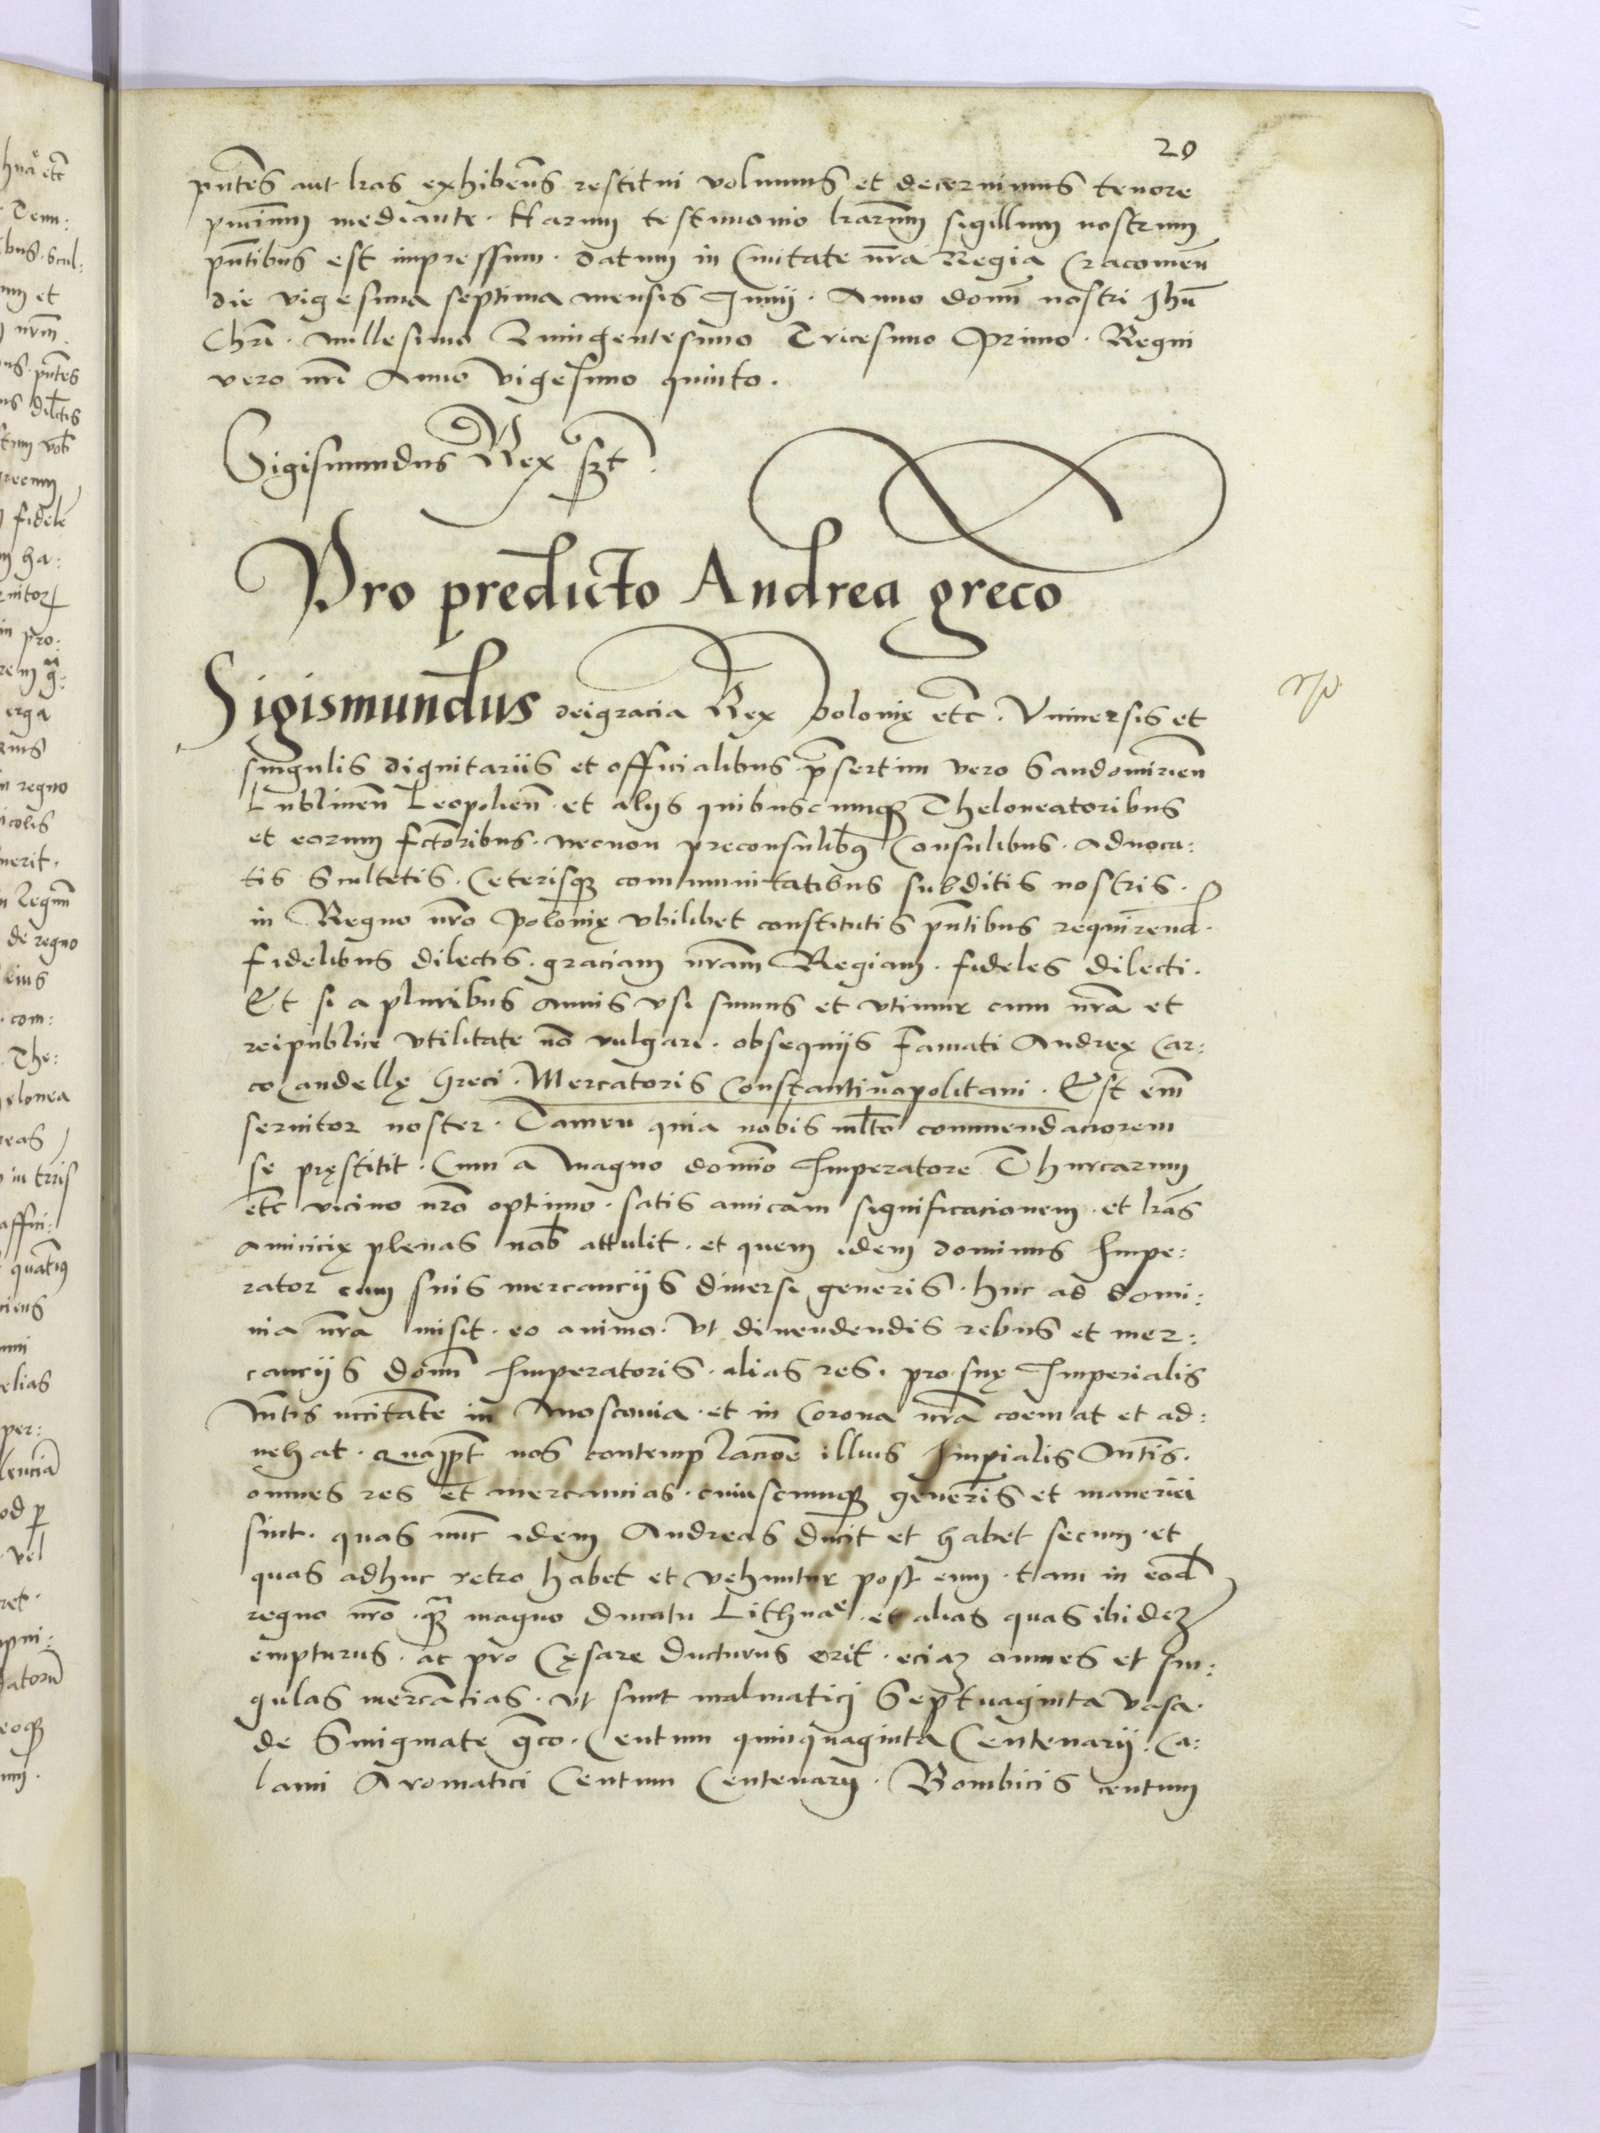 20
pntes aut lras exhibens restitui volumus et decernimus tenore
pncium mediante. Harum testimonio lrarum sigillum nostrum
pntibus est impressum. Datum in Civitate nra Regia Cracovien
die vigesima septima mensis Junij. Anno domi nostri Jhu
Chri. Millesimo Quingentesimo Tricesimo Primo. Regni
vero nri Anno vigesimo quinto.
Sigismundus Rex sszt
Pro predicto Andrea greco
Sigismundus deigracia Rex Polonię etc. Vniversis et
singulis dignitariis et officialibus presertim vero Sandomirien
Lublinen Leopolien. et alijs quibuscumque Theloneatoribus
et eorum fctoribus. necnon preconsulibus Consulibus. Advoca:
tis Scultetis. Ceterisque communitatibus subditis nostris.
in Regno nro Polonię vbilibet constitutis pntibus requirend.
fidelibus dilectis. graciam nram Regiam. fideles dilecti.
Et si a pluribus annis vsi sumus et vtimur cum nra et
reipublice vtilitate no vulgari. obsequijs Famati Andreę Car:
co Candellę Greci. Mercatoris Constantinapolitani. Est em
servitor noster. Tamen quia nobis mlto commendaciorem
se pręstitit. Cum a Magno domino Imperatore Thurcarum
etc vicino nro optimo. satis amicam significacionem. et lras
amicicię plenas nob attulit. et quem idem dominus Impe:
rator cum suis mercancijs diversi generis. huc ad domi:
nia nra misit. eo animo. Vt divendendis rebus et mer:
cancijs domi Imperatoris. alias res. pro suę Imperialis
Mtis necitate in Moscovia. et in Corona nra coemat et ad:
vehat. Quappt nos contemplacione illius Imperialis Mtis.
omnes res et mercancias. cuiuscumque generis et maneriei
sint. quas nunc idem Andreas ducit et habet secum. et
quas adhuc retro habet et vehuntur post eum. tam in eod
regno nro. quam magno ducatu Lithuae. et alias quas ibidez
empturus. ac pro Cęsare ducturus erit. eciaz omnes et sin:
gulas mercancias. Vt sunt malmatici Septuaginta vasa.
de Smigmate greco. Centum quinquaginta Centenarij. Ca:
lami Aromatici Centum Centenarij. Bombicis centum